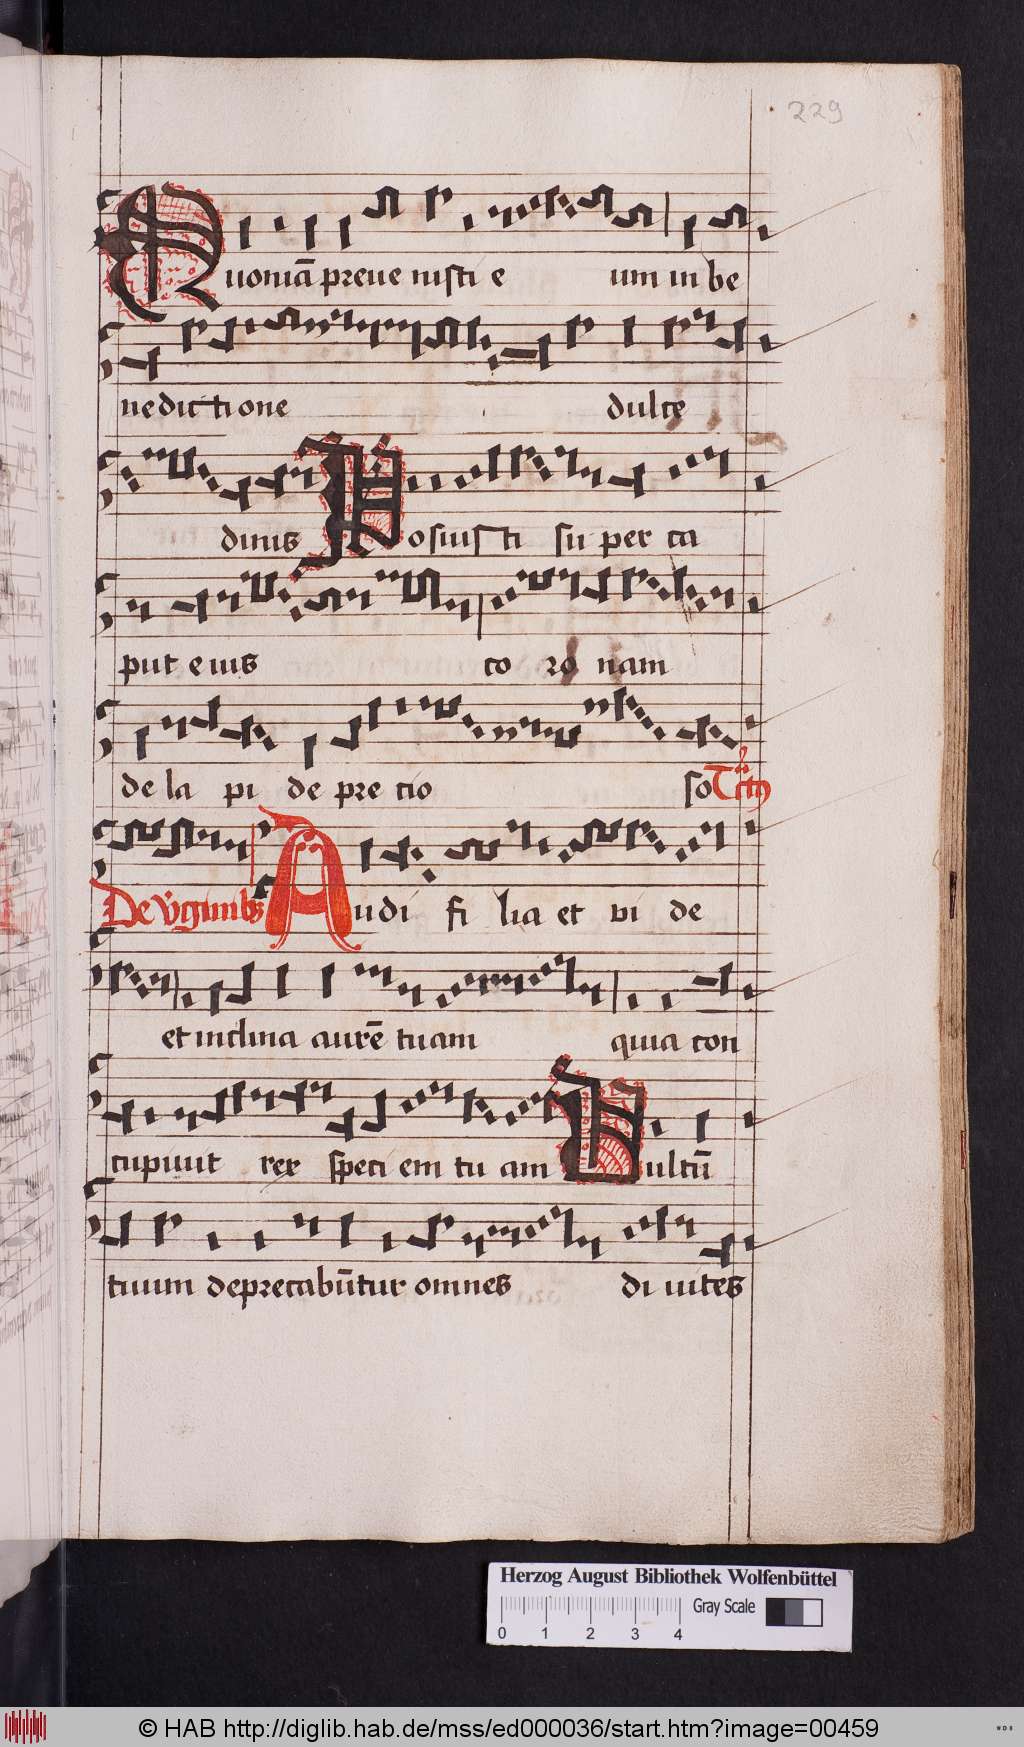 229
Quoniā preue nisti e um in be
nedictione dulce
dinis Posuisti su per ca
put eius co ro nam
de la pi de pre cio so Tctꝰ
De v̄gīnibꝫ Audi fi lia et vi de
et inclina aurē tuam quia con
cupiuit rex speci em tu am Vultū
tuum deprecabūtur omnes di uites
Herzog August Bibliothek Wolfenbüttel
Gray Scale
0 1 2 3 4
© HAB http://diglib.hab.de/mss/ed000036/start.htm?image=00459